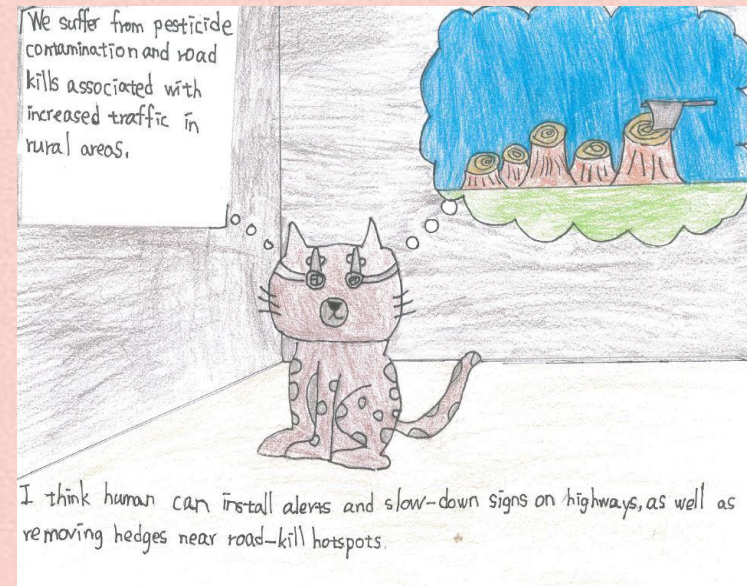 We suffer from pesticide
contamination and road
kills associated with
increased traffic in
rural areas.
I think human can install alerts and slow-down signs on highways, as well as
removing hedges near road-kill hotspots.